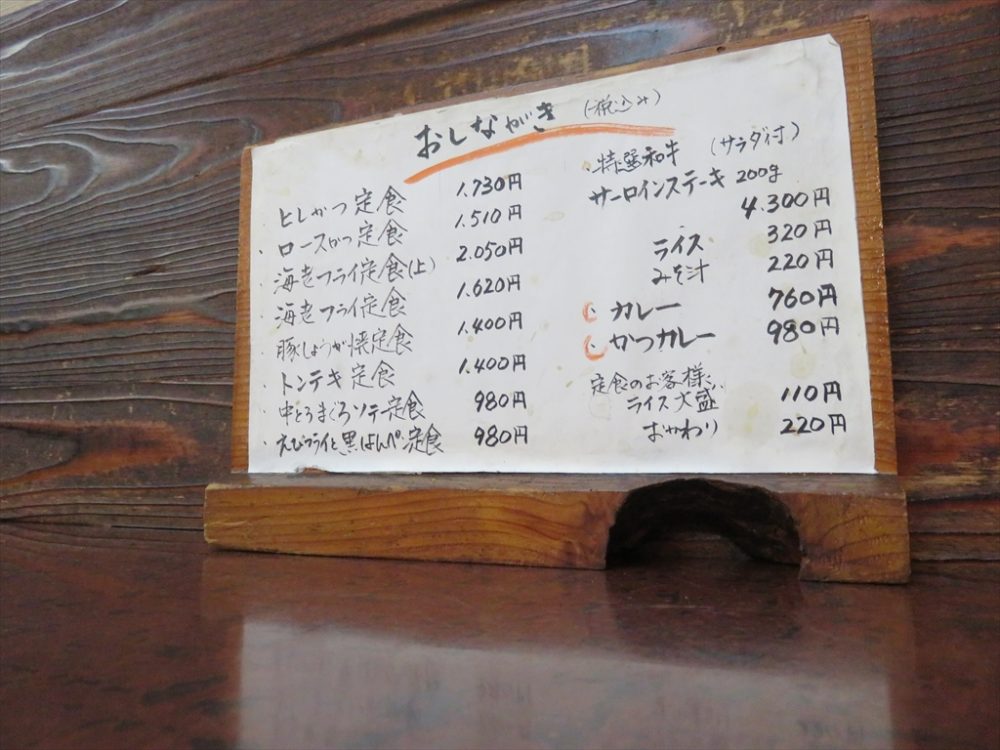 おしながき (税込み)
ヒレかつ定食 1.730円
・ロースかつ定食 1.510円
海老フライ定食(上) 2.050円
海老フライ定食 1.620円
豚しょうが焼定食 1.400円
トンテキ定食 1.400円
・中とろまぐろソテー定食 980円
・えびフライと黒はんぺん定食 980円
・特選和牛 (サラダ付)
サーロインステーキ 200g
4.300円
ライス 320円
みそ汁 220円
・カレー 760円
・かつカレー 980円
定食のお客様、
ライス大盛 110円
おかわり 220円